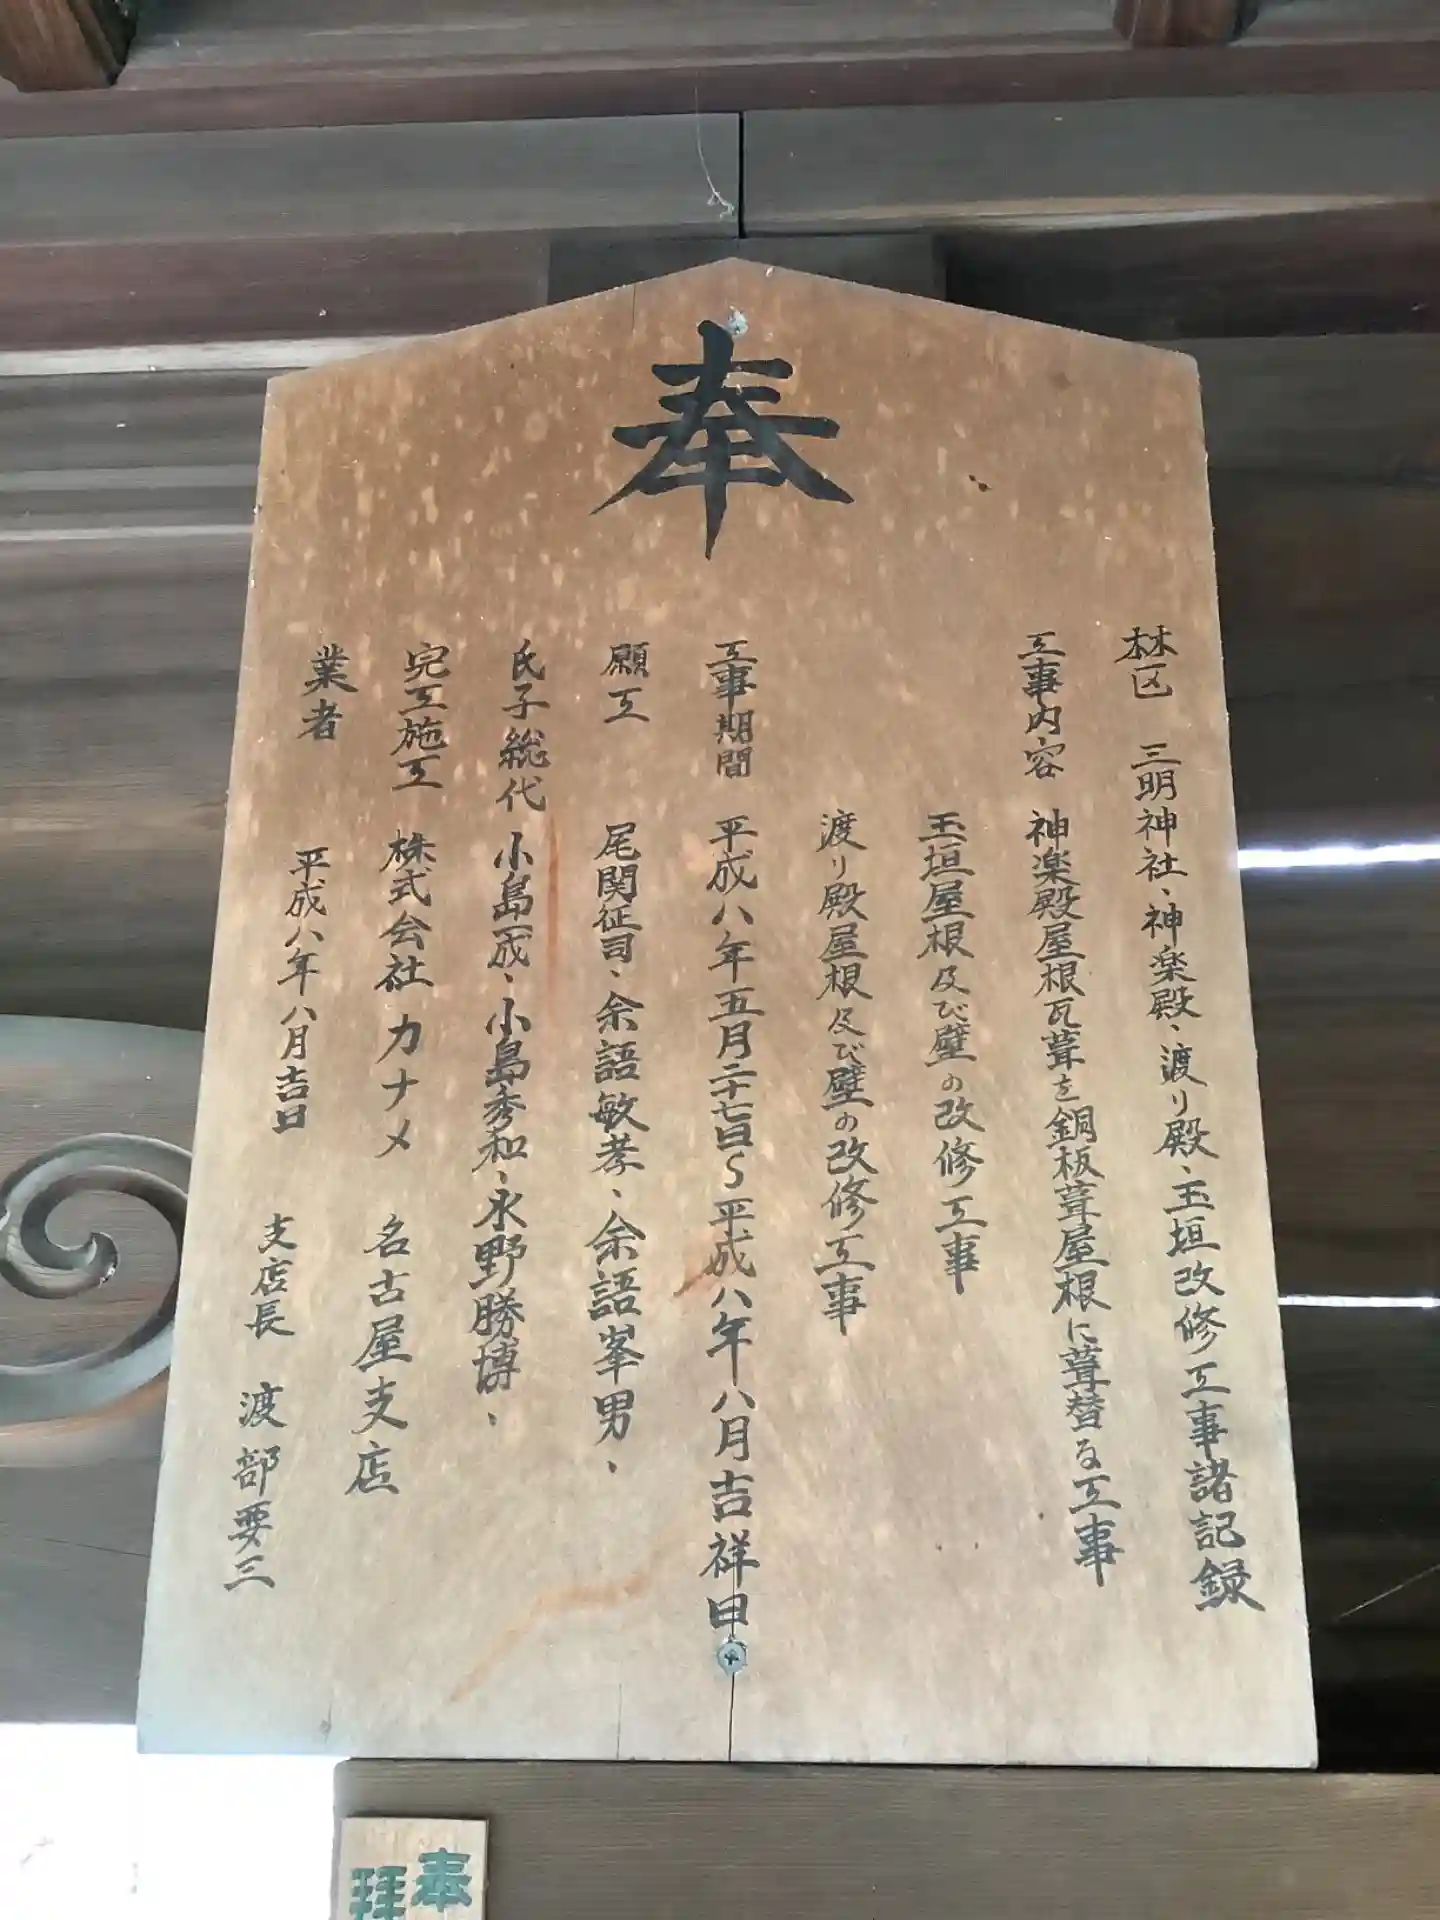 奉
林区 三明神社、神楽殿、渡り殿、玉垣改修工事諸記録
工事内容 神楽殿屋根瓦葺を銅板葺屋根に葺替る工事
玉垣屋根及び壁の改修工事
渡り殿屋根及び壁の改修工事
工事期間 平成八年五月二十七日〜平成八年八月吉祥日
願工 尾関征司、余語敏孝、余語峯男、
氏子総代 小島一成、小島秀和、永野勝博、
完工施工 株式会社カナメ 名古屋支店
業者 平成八年八月吉日 支店長 渡部要三
奉
拝